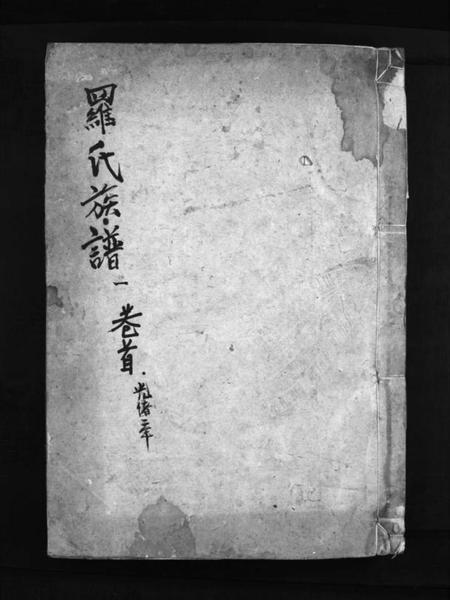 羅氏族譜 一 卷首. 光緒二年